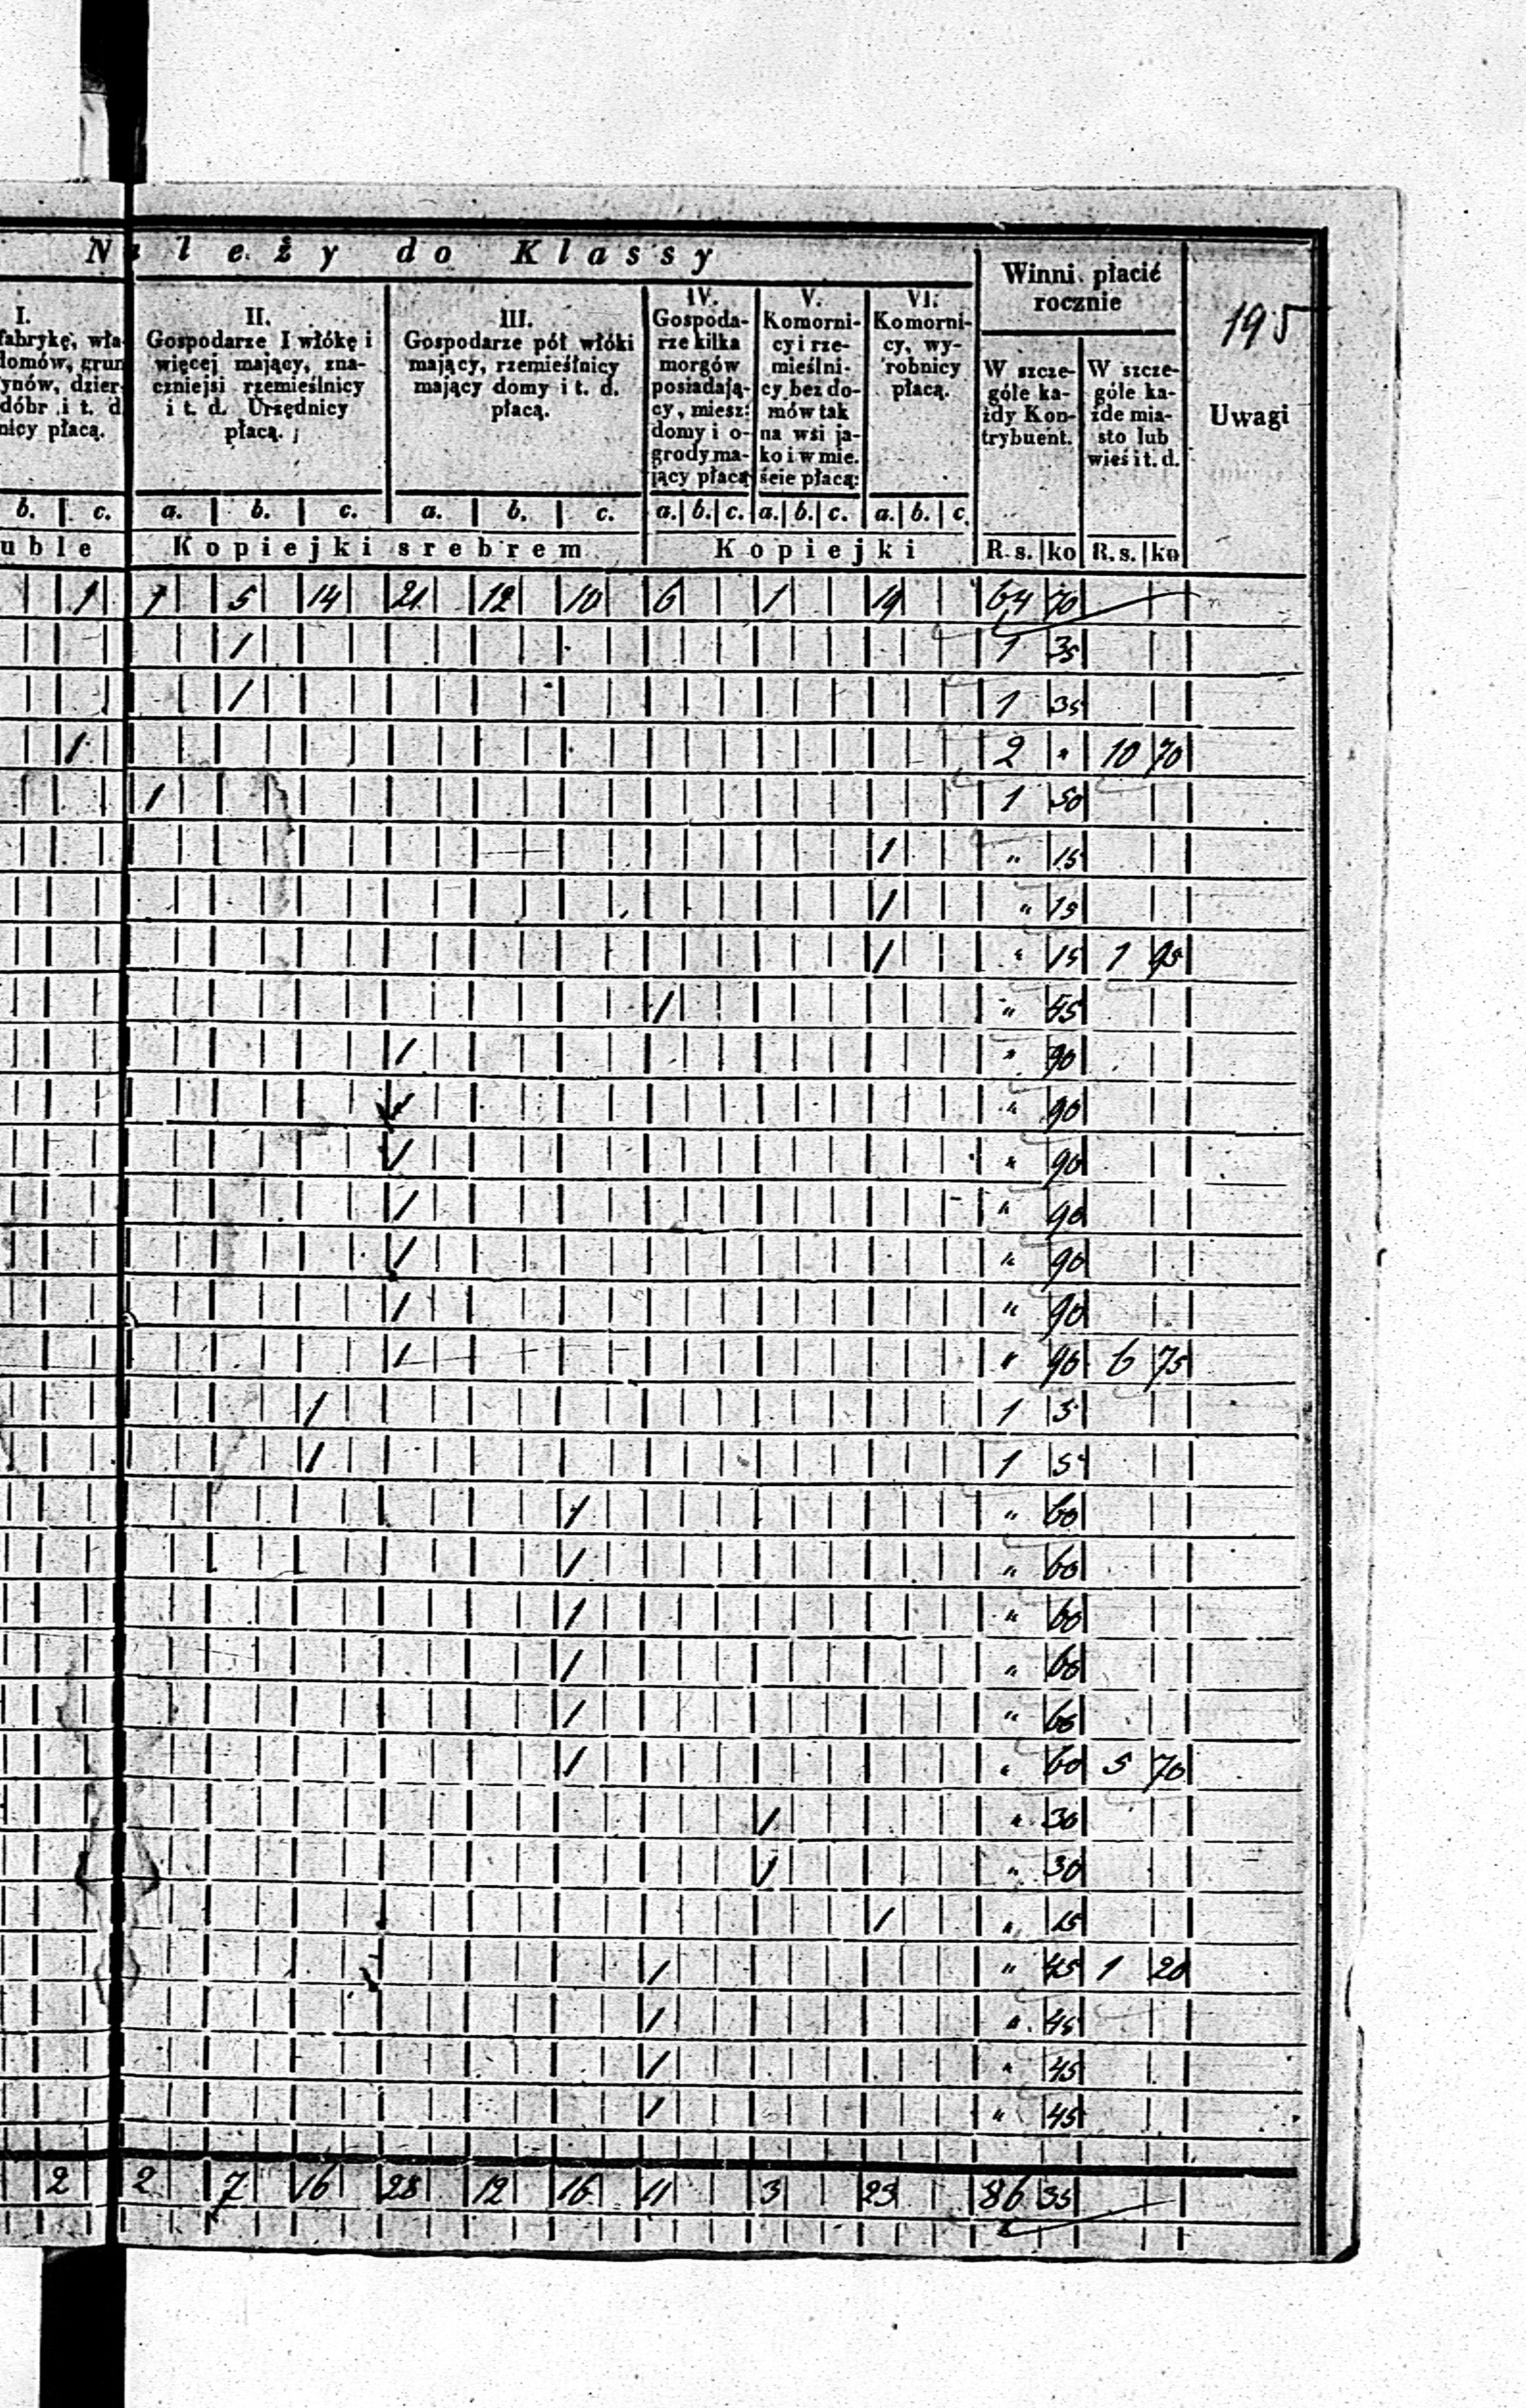 Należy do Klassy
Winni płacić
rocznie
195
I.
fabrykę, wła-
domów, grun
ynów, dzier-
dóbr i t. d.
nicy płacą.
II.
Gospodarze I włókę i
więcej mający, zna-
czniejsi rzemieślnicy
i t. d. Urzędnicy
płacą.
III.
Gospodarze pół włóki
mający, rzemieślnicy
mający domy i t. d.
płacą.
IV.
Gospoda-
rze kilka
morgów
posiadają-
cy, miesz:
domy i o-
grody ma-
jący płacą
V.
Komorni-
cy i rze-
mieślni-
cy bez do-
mów tak
na wsi ja-
ko i w mie.
ście płacą:
VI.
Komorni-
cy, wy-
robnicy
płacą.
W szcze-
góle ka-
żdy Kon-
trybuent.
W szcze-
góle ka-
żde mia-
sto lub
wieś i t. d.
Uwagi
b. c. a. b. c. a. b. c. a. b. c. a. b. c. a. b. c.
uble Kopiejki srebrem Kopiejki R. s. ko R. s. ko
1 1 5 14 21 12 10 6 1 19 64 70
1 1 35
1 1 35
1 2 " 10 70
1 1 50
1 " 15
1 " 15
1 " 15 1 95
1 " 45
1 " 90
1 " 90
1 " 90
1 " 90
1 " 90
1 " 90
1 " 90 6 75
1 1 5
1 1 5
1 " 60
1 " 60
1 " 60
1 " 60
1 " 60
1 " 60 5 70
1 " 30
1 " 30
1 " 15
1 " 45 1 20
1 " 45
1 " 45
1 " 45
2 2 7 16 28 12 16 11 3 23 86 35